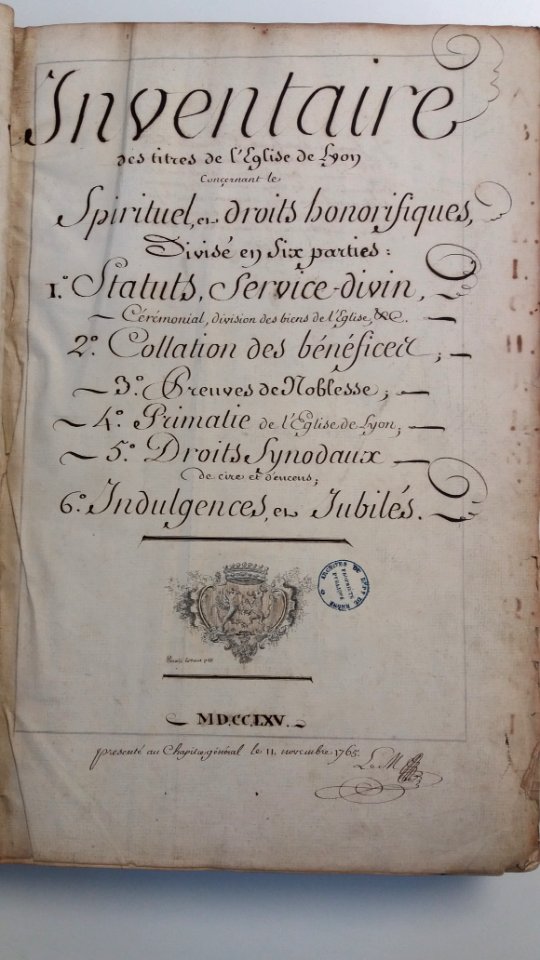 Inventaire
des titres de l'Eglise de Lyon
Concernant le
Spirituel, et droits honorifiques,
Divisé en Six parties:
1.° Statuts, Service-divin,
Cérémonial, division des biens de l'Eglise, &c.
2.° Collation des bénéfices;
3.° Preuves de Noblesse;
4.° Primatie de l'Eglise de Lyon;
5.° Droits Synodaux
de cire et d'encens;
6.° Indulgences, et Jubilés.
ARCHIVES DU DEPT DU RHONE
PROPRIETE PUBLIQUE
MD.CC.LXV.
presenté au Chapitre général le 11. novembre 1765.